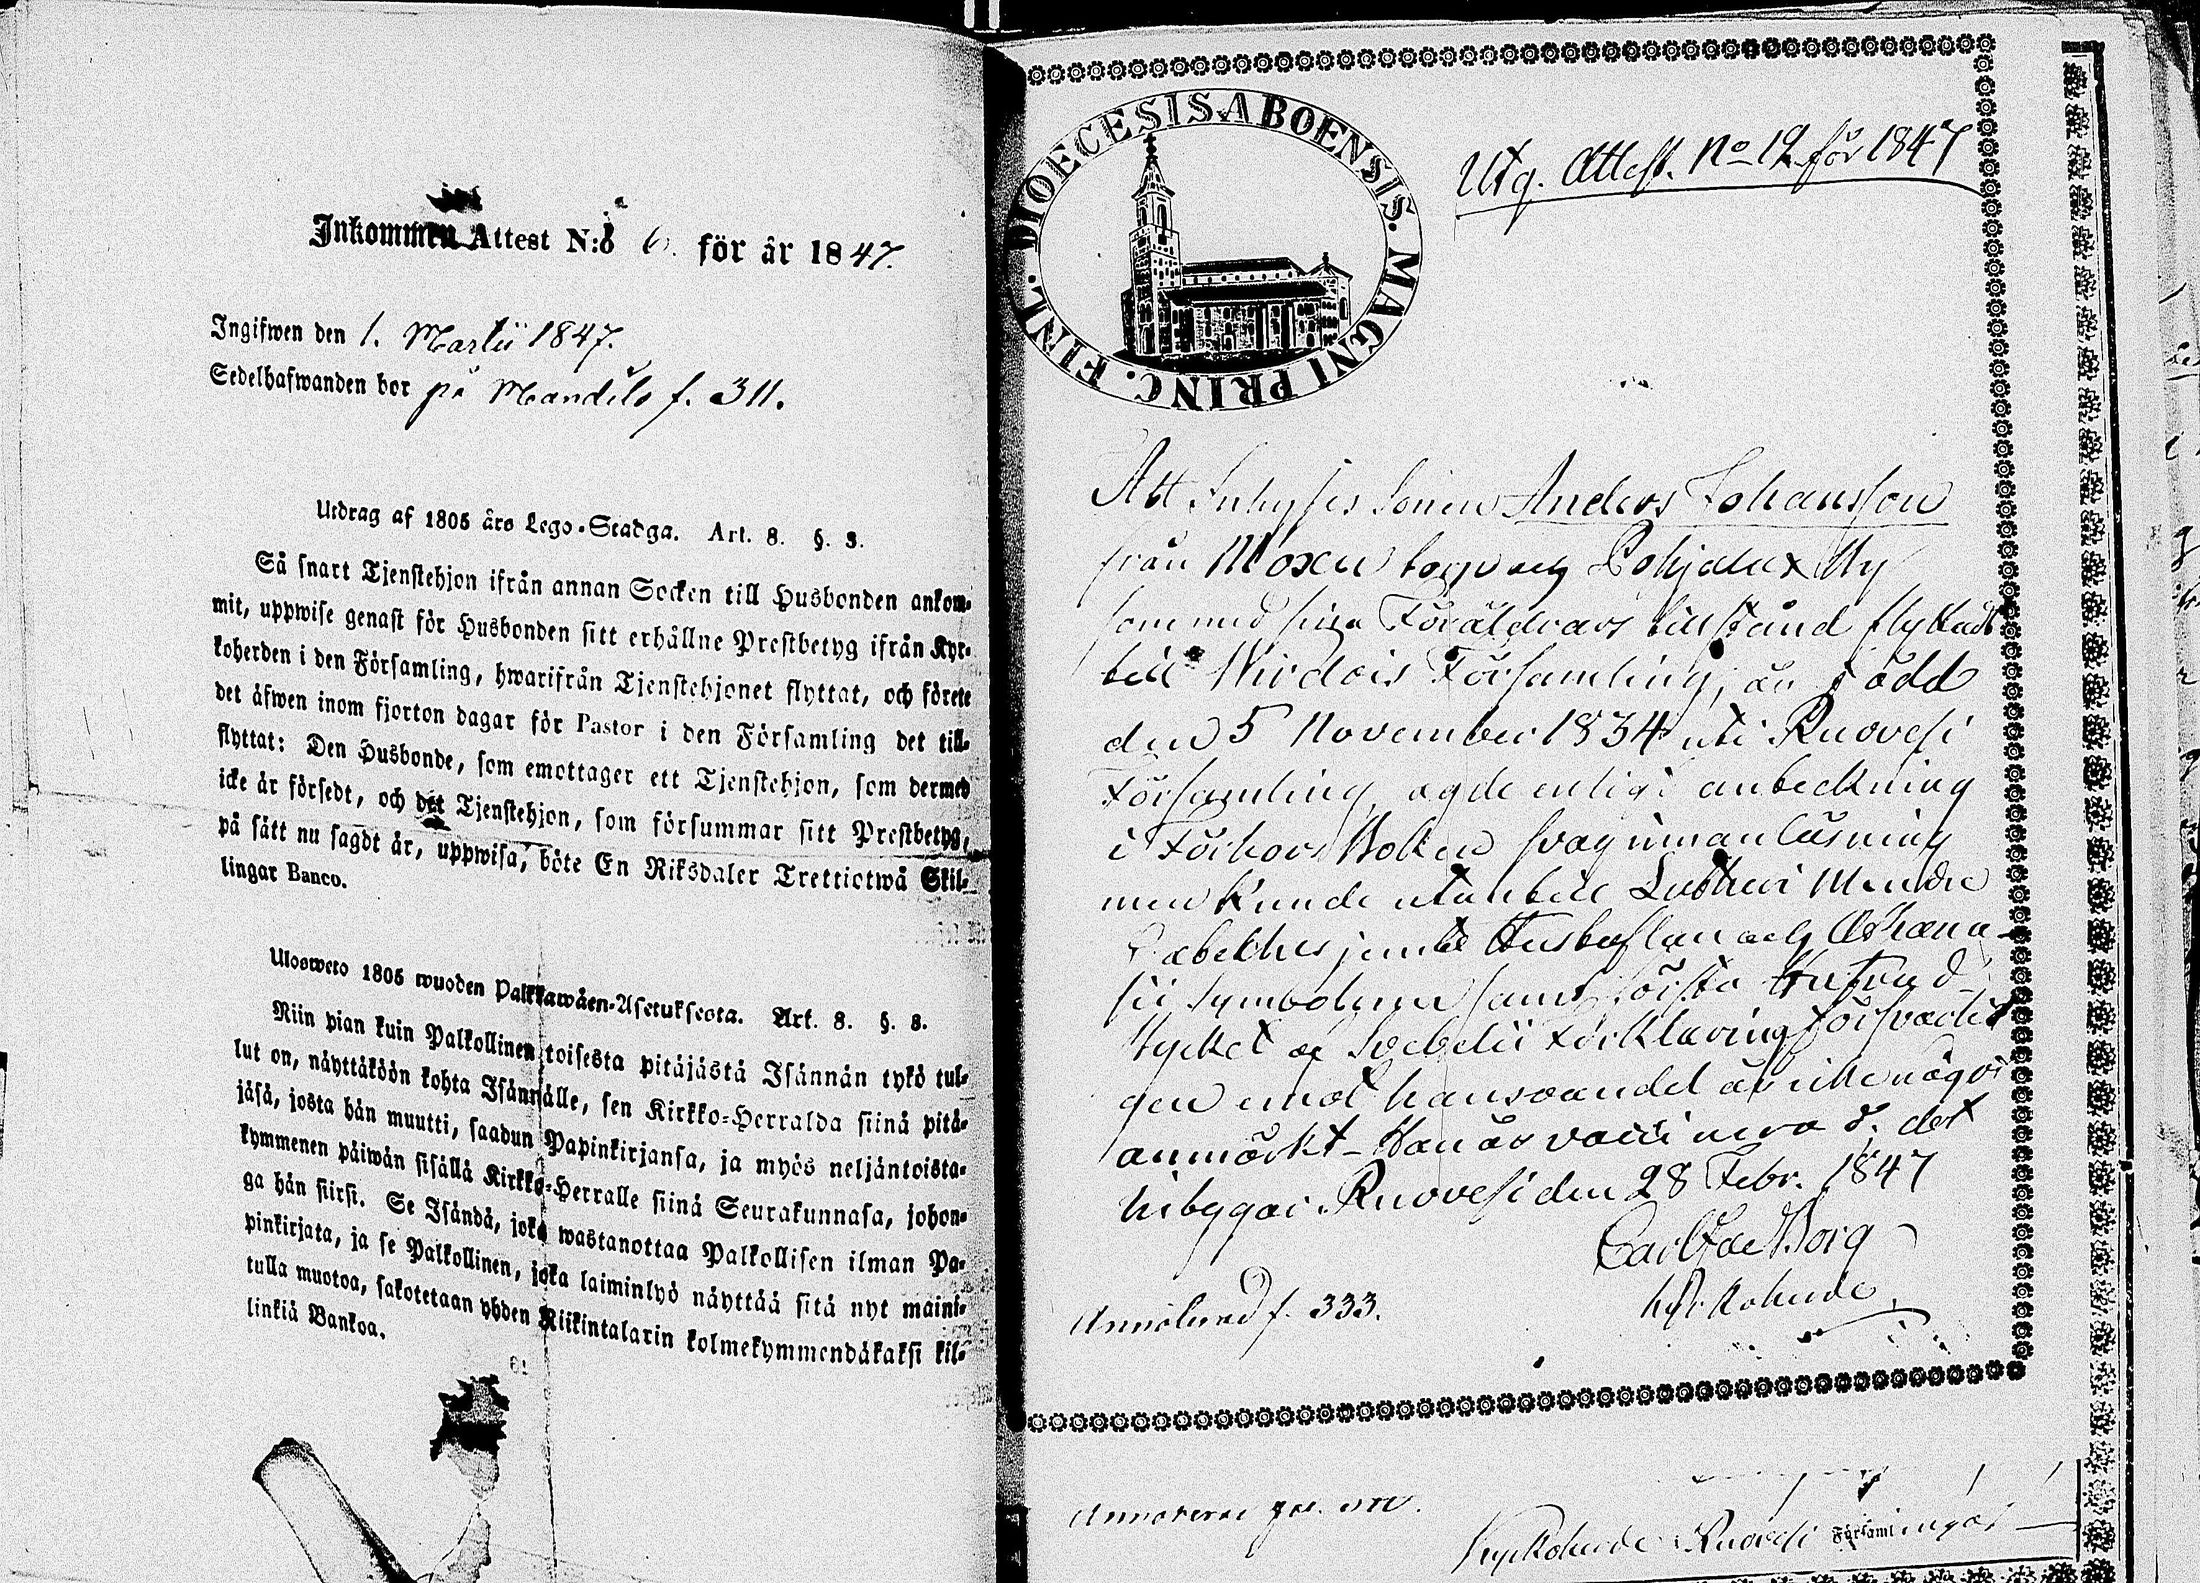 Inkommen Attest N:o 6. för år 1847.
Ingifwen den 1. Martii 1847.
Sedelhafwanden bor på Mandils f. 311.
Utdrag af 1805 års Lego-Stadga. Art. 8. §. 3.
Så snart Tjenstehjon ifrån annan Socken till Husbonden ankom-
mit, uppwise genast för Husbonden sitt erhållne Prestbetyg ifrån Kyr-
koherden i den Församling, hwarifrån Tjenstehjonet flyttat, och förete
det äfwen inom fjorton dagar för Pastor i den Församling det till-
flyttat: Den Husbonde, som emottager ett Tjenstehjon, som dermed
icke är försedt, och det Tjenstehjon, som försummar sitt Prestbetyg,
på sätt nu sagdt är, uppwisa, böte En Riksdaler Trettiotwå Skil-
lingar Banco.
Ulosweto 1805 wuoden Palkkawäen-Asetuksesta. Art. 8. §. 3.
Niin pian kuin Palkollinen toisesta pitäjästä Isännän tykö tul-
lut on, näyttäköön kohta Isännälle, sen Kirkko-Herralda siinä pitä-
jäsä, josta hän muutti, saadun Papinkirjansa, ja myös neljäntoista-
kymmenen päiwän sisällä Kirkko-Herralle siinä Seurakunnasa, johon-
ga hän siirsi. Se Isändä, joka wastanottaa Palkollisen ilman Pa-
pinkirjata, ja se Palkollinen, joka laiminlyö näyttää sitä nyt maini-
tulla muotoa, sakotetaan yhden Riikintalarin kolmekymmendäkaksi kil-
linkiä Bankoa.
DIOECESIS ABOENSIS. MAGNI PRINC. FINL.
Utg. Attest. No 12 för 1847
Att Inhyses Sonen Anders Johansson
från Moxen torp och Pohjalax By
som med sina Föräldrars tillstånd flyttadt
till Wirdois Församling, är född
den 5 November 1834 uti Ruovesi
Församling, ägde enligt anteckning
i Förhörs Boken svag innanläsning
men kunde utantill Lutheri Mindre
Cabeches jemte Hustaflan och Athana-
sii Symbolum samt första Hufvud-
stycket af Svebelii Förklaring
gen emot hans vandel är icke något
anmärkt - Han är vaccinerad. det
intygar. Ruovesi den 28 Febr. 1847
Borg
Kyrkoherde.
Annoterad f. 333.
Kyrkoherde Ruovesi Församl